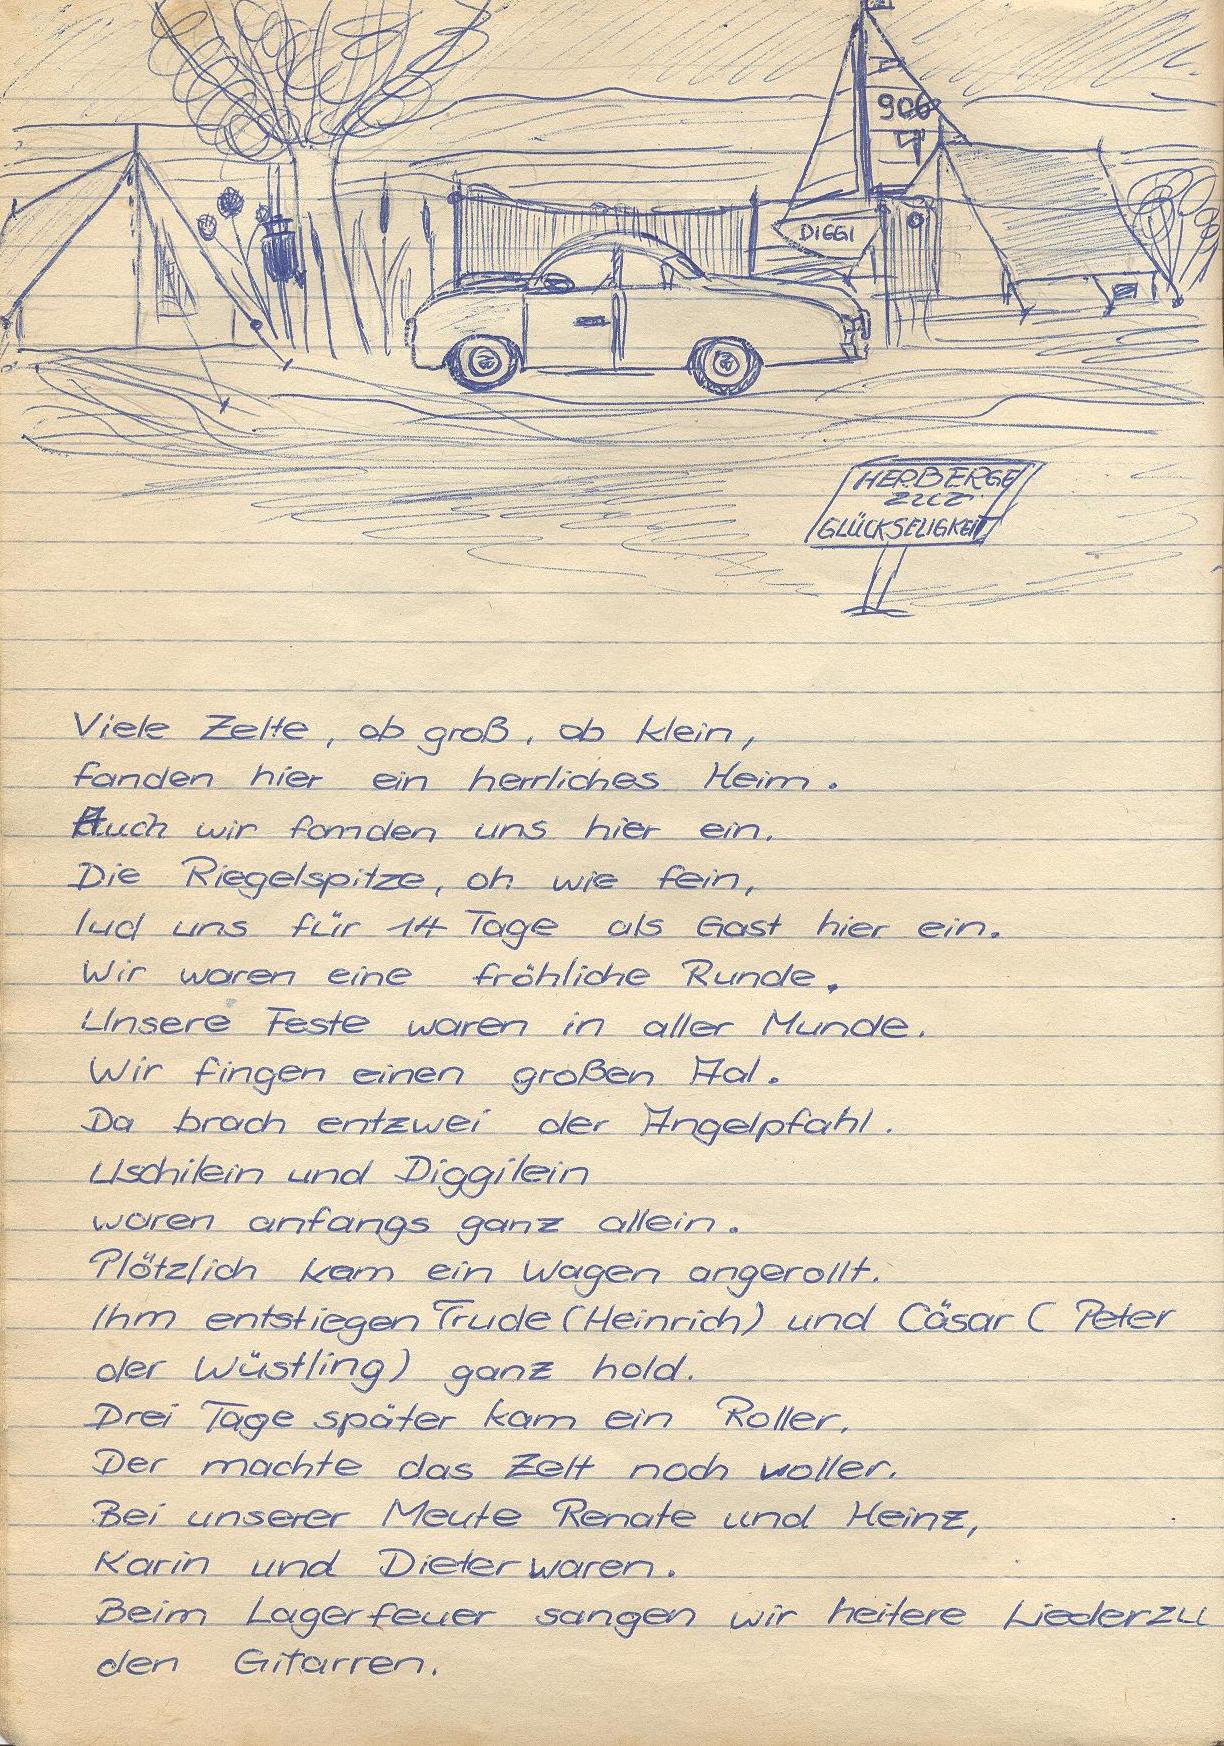 906
DIGGI
HERBERGE
ZUR
GLÜCKSELIGKEIT
Viele Zelte, ob groß, ob klein,
fanden hier ein herrliches Heim.
Auch wir fanden uns hier ein.
Die Riegelspitze, oh wie fein,
lud uns für 14 Tage als Gast hier ein.
Wir waren eine fröhliche Runde.
Unsere Feste waren in aller Munde.
Wir fingen einen großen Aal.
Da brach entzwei der Angelpfahl.
Uschilein und Diggilein
waren anfangs ganz allein.
Plötzlich kam ein Wagen angerollt.
Ihm entstiegen Trude (Heinrich) und Cäsar ( Peter
der Wüstling) ganz hold.
Drei Tage später kam ein Roller.
Der machte das Zelt noch voller.
Bei unserer Meute Renate und Heinz,
Karin und Dieter waren.
Beim Lagerfeuer sangen wir heitere Lieder zu
den Gitarren.